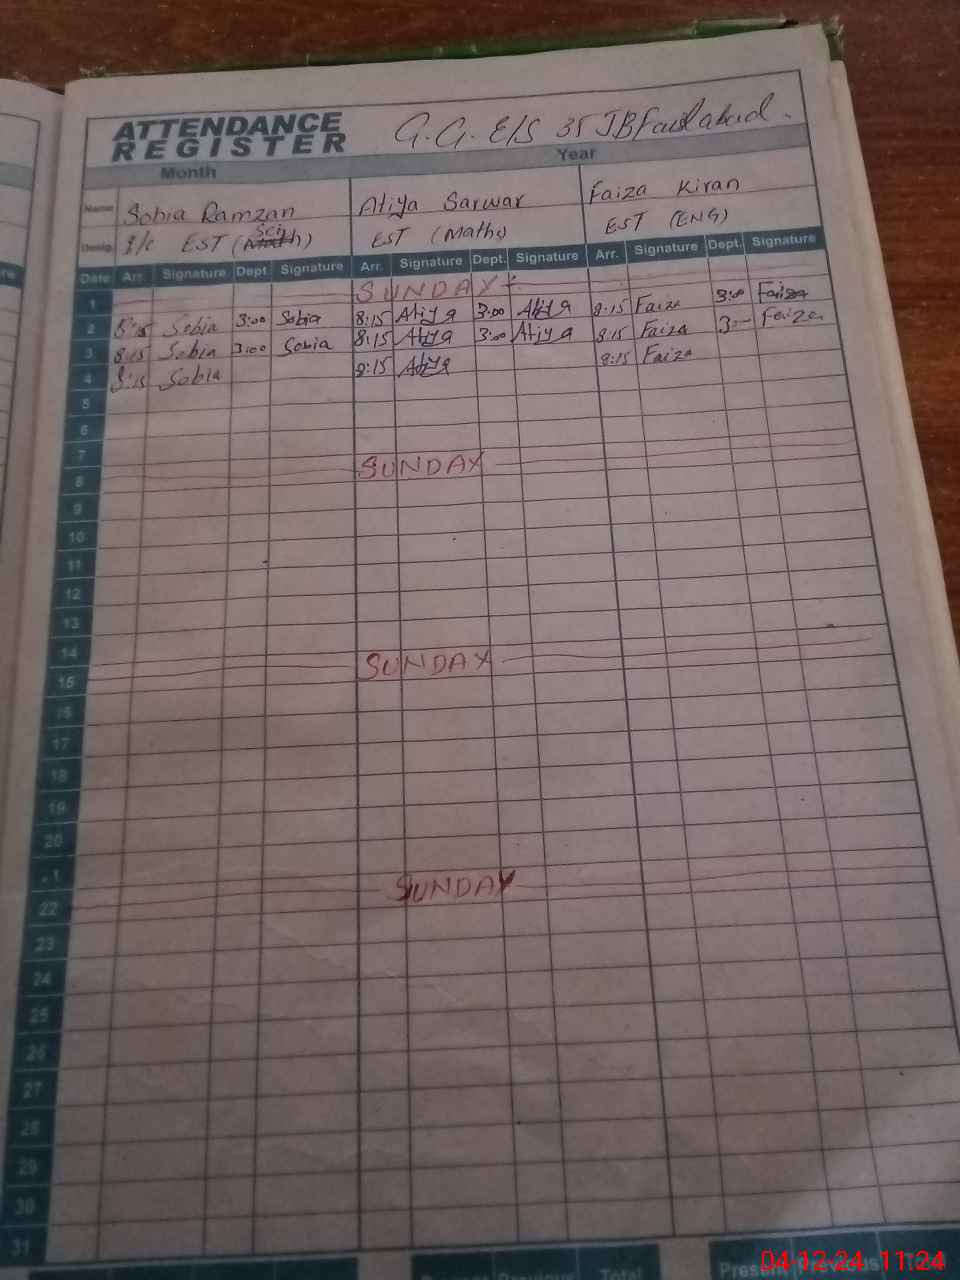 ATTENDANCE REGISTER G.G. E/S 35 JB Faislabad.
Month Year
Name Sobia Ramzan Atiya Sarwar Faiza Kiran
Desig. I/c EST (Math Sci) EST (Maths) EST (ENG)
Date Arr. Signature Dept. Signature Arr. Signature Dept. Signature Arr. Signature Dept. Signature
1 SUNDAY
2 8:15 Sobia 3:00 Sobia 8:15 Atiya 3:00 Atiya 8:15 Faiza 3:00 Faiza
3 8:15 Sobia 3:00 Sobia 8:15 Atiya 3:00 Atiya 8:15 Faiza 3:— Faiza
4 8:15 Sobia 8:15 Atiya 8:15 Faiza
5
6
7
8 SUNDAY
9
10
11
12
13
14
15 SUNDAY
16
17
18
19
20
1
22 SUNDAY
23
24
25
26
27
28
29
30
31
Present Previous Total Present Previous
04-12-24 11:24